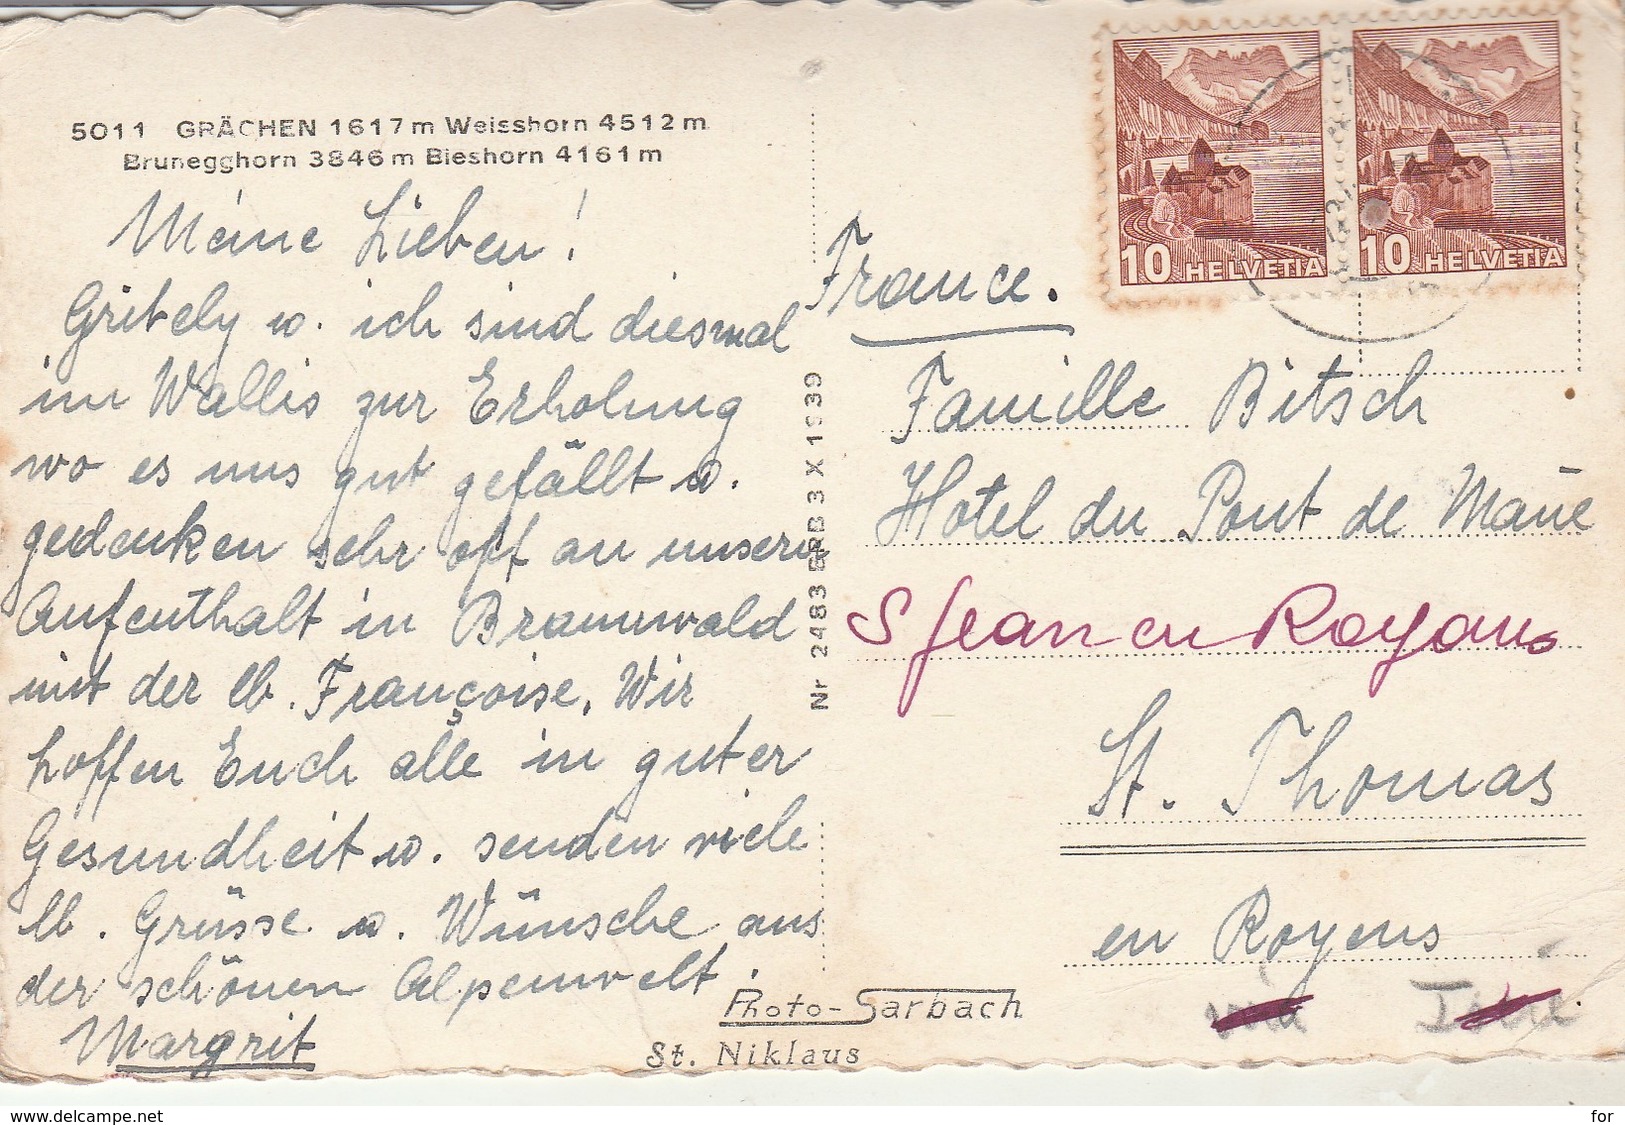 5011 GRÄCHEN 1617 m Weisshorn 4512 m
Brunegghorn 3846 m Bieshorn 4161 m
Meine Lieben!
Gritely u. ich sind diesmal
im Wallis zur Erholung
wo es uns gut gefällt u.
gedenken sehr oft an unsern
Aufenthalt in Braunwald
mit der lb. Françoise. Wir
hoffen Euch alle in guter
Gesundheit u. senden viele
lb. Grüsse u. Wünsche aus
der schönen Alpenwelt.
Margrit
Nr 2483 BRB 3 X 1939
10 HELVETIA
10 HELVETIA
France.
Famille Bitsch
Hotel du Pont de Mane
S Jean en Royans
St. Thomas
en Royens
via
Photo-Sarbach
St. Niklaus
www.delcampe.net
for